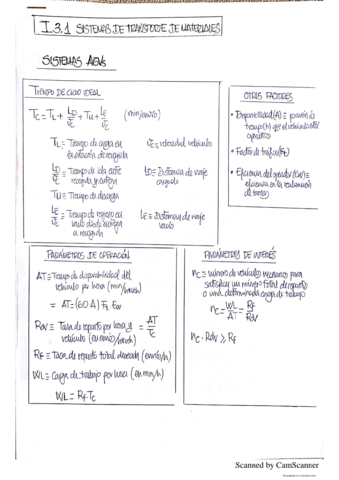 I.3.1 SISTEMAS DE TRANSPORTE DE MATERIALES
SISTEMAS AGVs
TIEMPO DE CICLO IDEAL
Tc = TL + Ld/vc + Tu + Le/vc (min/envío)
TL ≡ Tiempo de carga en estación de recogida
vc ≡ velocidad vehículo
Ld/vc ≡ Tiempo de ida entre recogida y entrega
Ld ≡ Distancia de viaje cargado
Tu ≡ Tiempo de descarga
Le/vc ≡ Tiempo de regreso en vacío desde entrega a recogida
Le ≡ Distancia de viaje vacío
OTROS FACTORES
• Disponibilidad (A) ≡ porción de tiempo (%) que el vehículo está operativo
• Factor de tráfico (Ft)
• Eficiencia del operador (Ew) ≡ eficiencia en la realización de tareas
PARÁMETROS DE OPERACIÓN
AT ≡ Tiempo de disponibilidad del vehículo por hora (min/hora/veh)
AT = (60 A) Ft Ew
Rdv ≡ Tasa de reparto por hora y vehículo (en envío/hora/veh) = AT/Tc
Rf ≡ Tasa de reparto total deseada (envíos/h)
WL ≡ Carga de trabajo por hora (en min/h)
WL = Rf Tc
PARÁMETROS DE INTERÉS
nc ≡ número de vehículos necesarios para satisfacer un número total de repartos o una determinada carga de trabajo
nc = WL/AT = Rf/Rdv
nc · Rdv ≥ Rf
Scanned by CamScanner